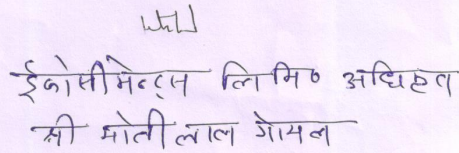 ईकोसीमेन्ट्स लिमि० अधिकृत
श्री मोतीलाल गोयल